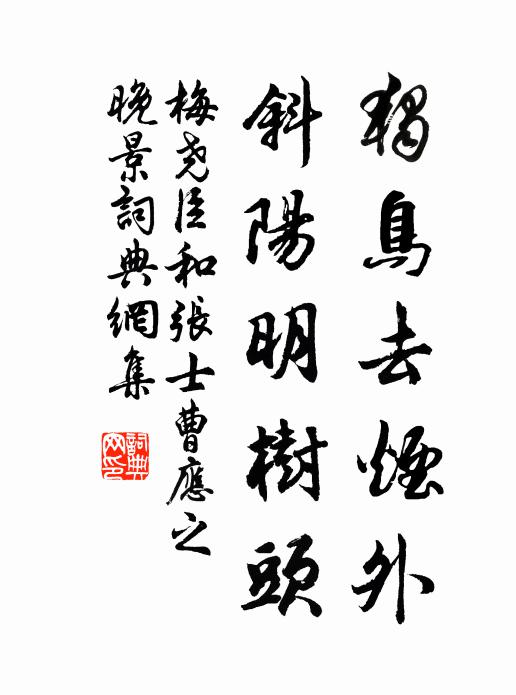 獨鳥去煙外
斜陽明樹頭
梅尧臣和張士曹應之
晚景詞典網集
詞典网印